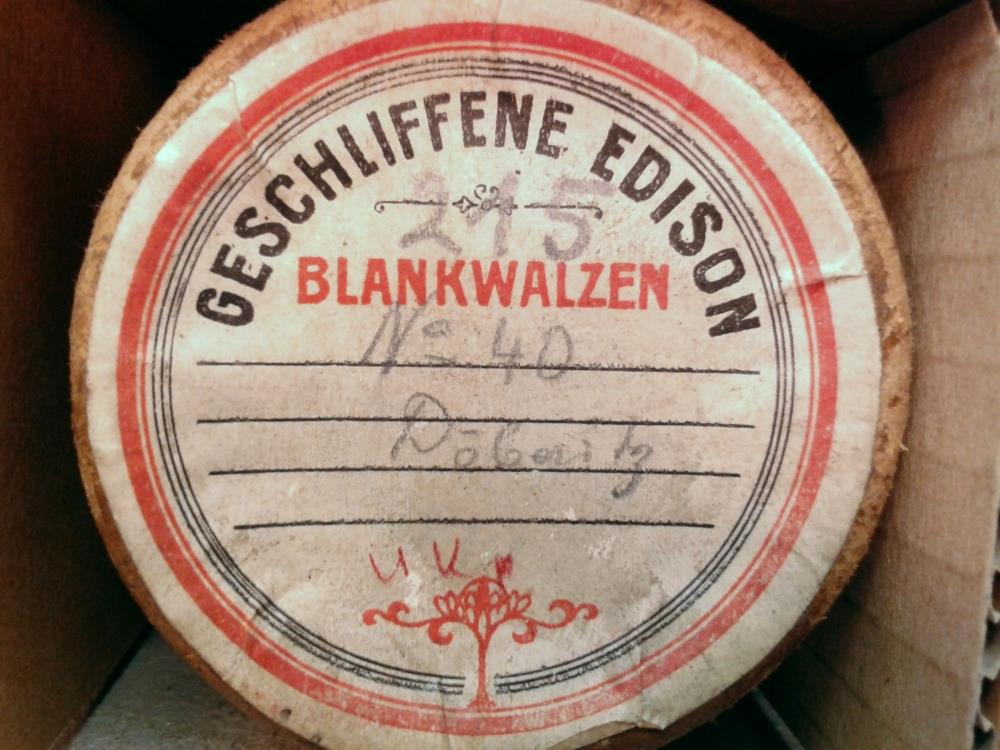 GESCHLIFFENE EDISON
215
BLANKWALZEN
No 40
Döberitz
U K